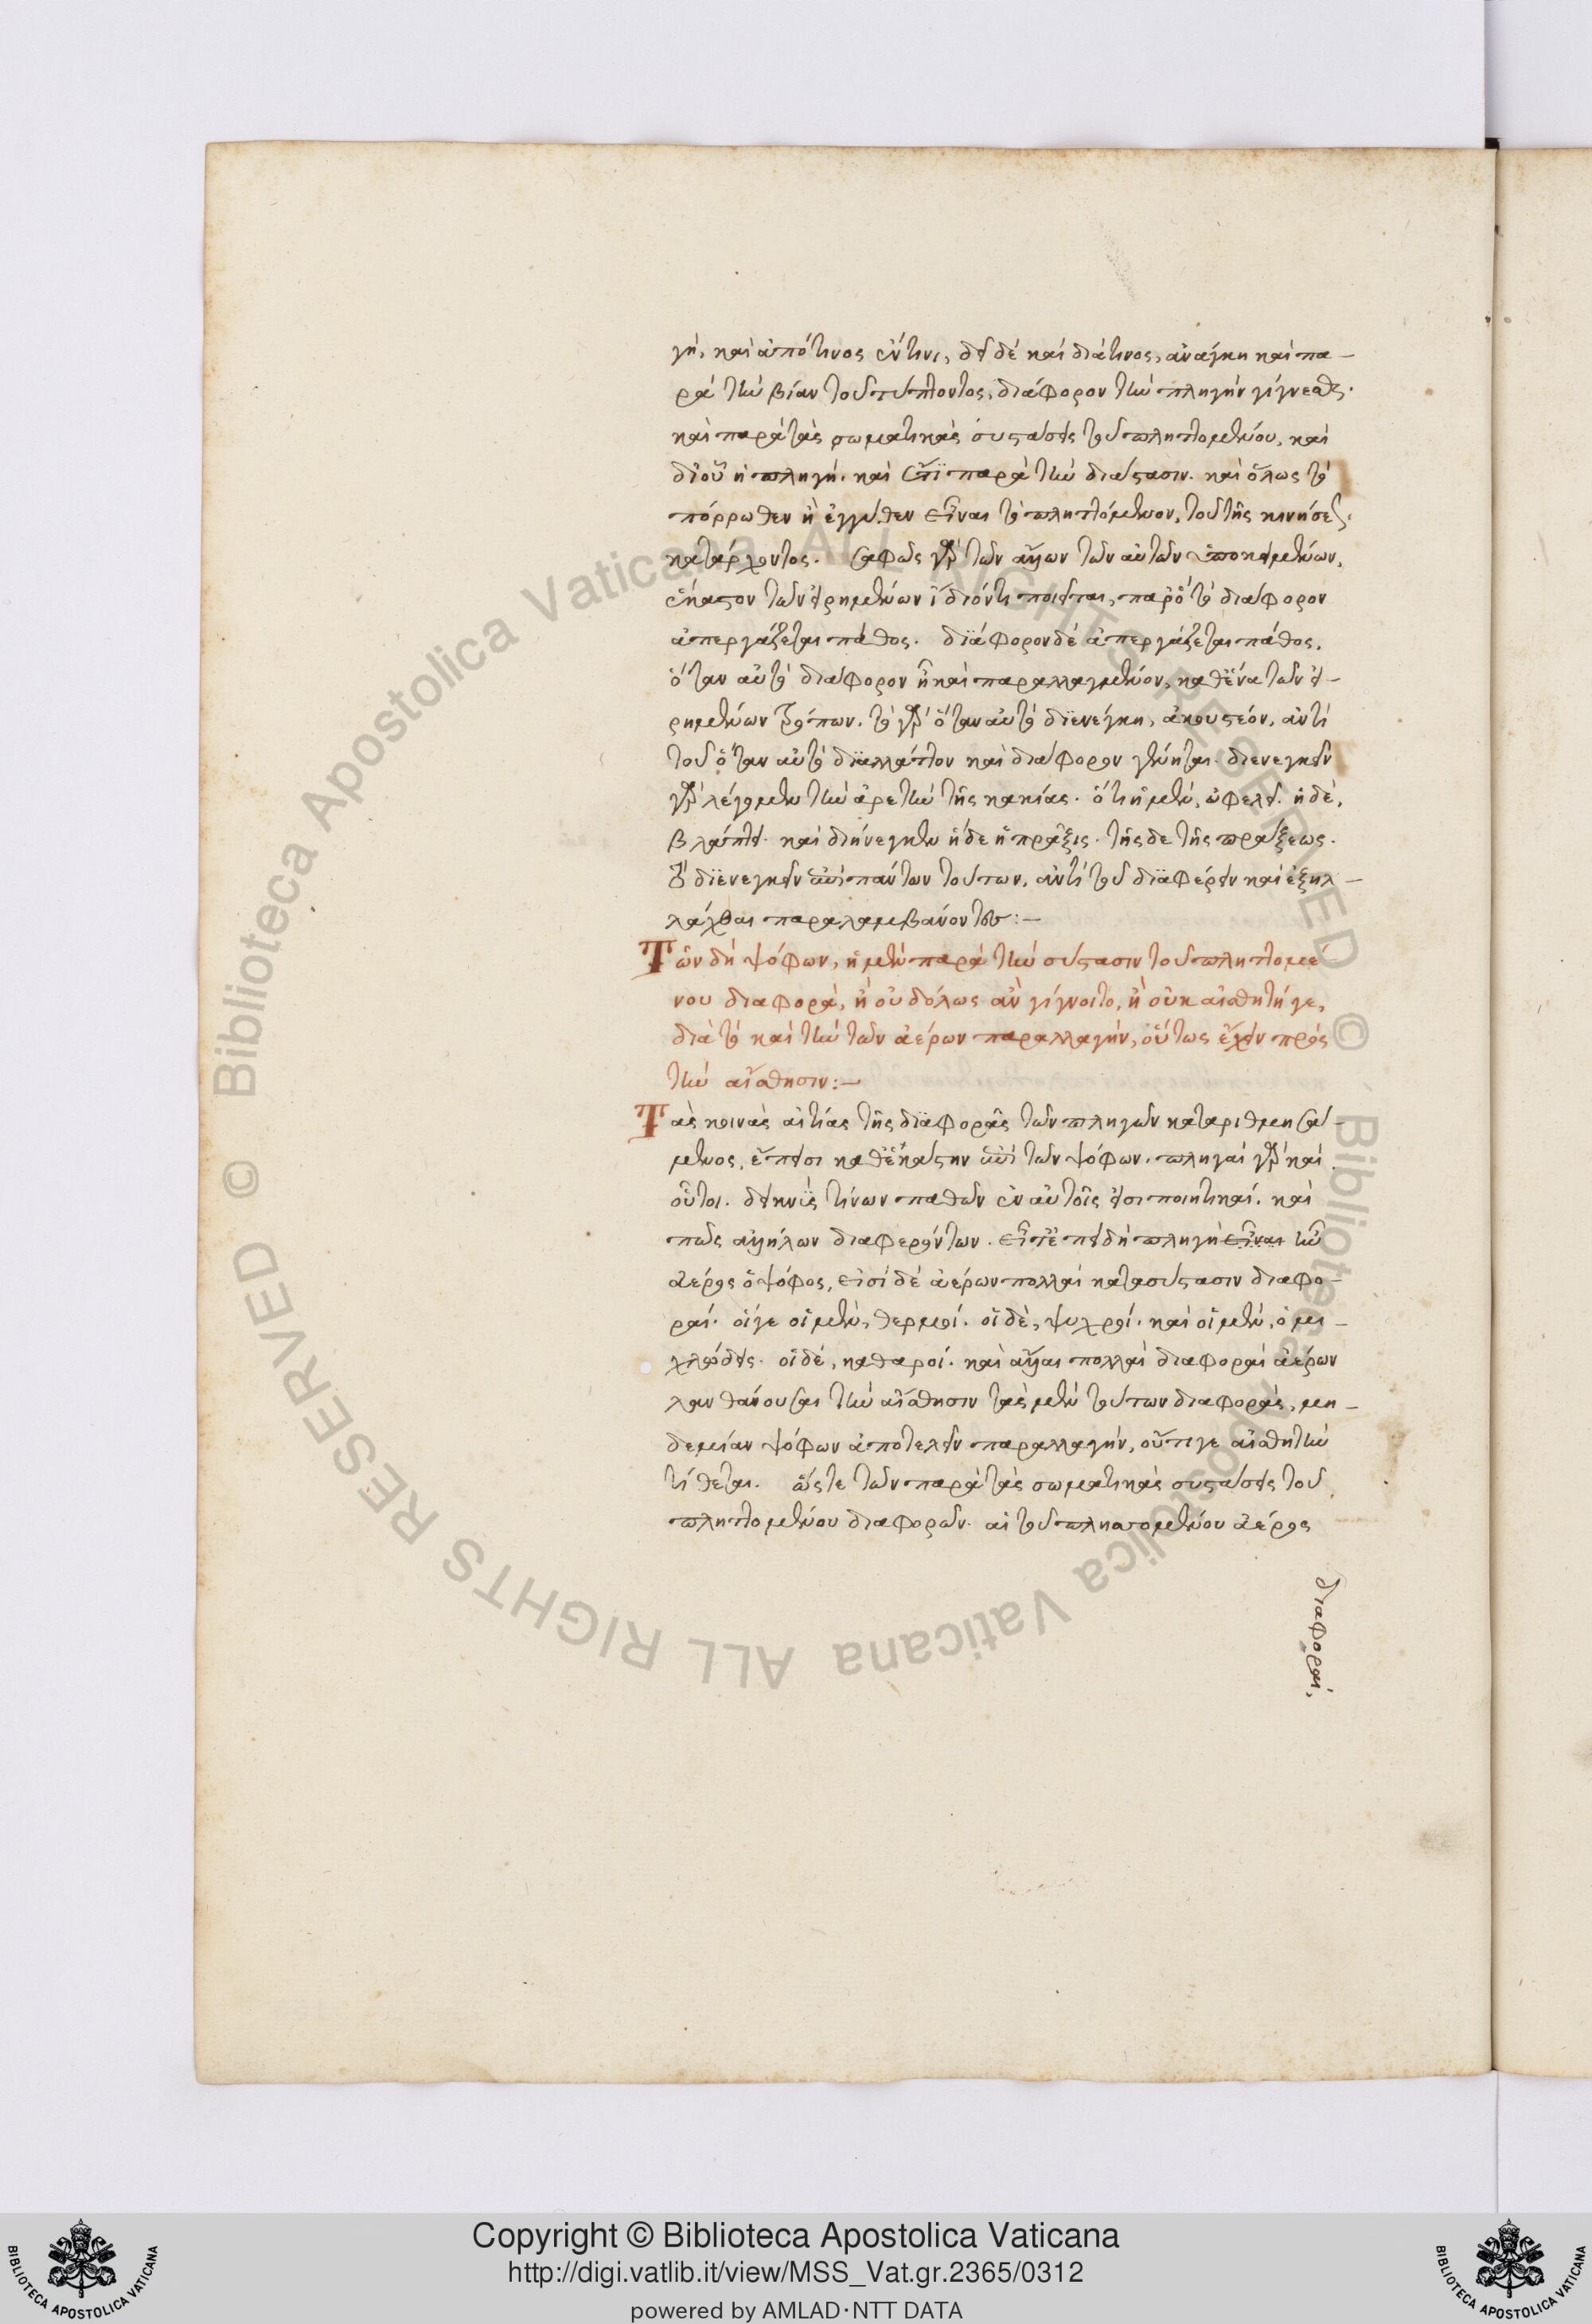 γὴ, καὶ ἀπό τινος ἔν τινι, δεῖ δὲ καὶ διά τινος, ἀνάγκη καὶ πα-
ρὰ τὴν βίαν τοῦ τύπτοντος, διάφορον τὴν πληγὴν γίγνεσθαι.
καὶ παρὰ τὰς σωματικὰς συστάσεις τοῦ πληττομένου, καὶ
δι' οὗ ἡ πληγή. καὶ ἔτι παρὰ τὴν διάστασιν. καὶ ὅλως τὸ
πόρρωθεν ἢ ἐγγύθεν εἶναι τὸ πληττόμενον, τοῦ τῆς κινήσεως
κατάρχοντος. σαφῶς γὰρ τῶν ἄλλων τῶν αὐτῶν ὑποκειμένων,
ἕκαστον τῶν εἰρημένων ἴδιόν τι ποιεῖται, παρ' ὃ τὸ διάφορον
ἀπεργάζεται πάθος. διάφορον δὲ ἀπεργάζεται πάθος,
ὅταν αὐτὸ διάφορον ἦ καὶ παραλλαγμένον, καθ' ἕνα τῶν εἰ-
ρημένων τρόπων. τὸ γὰρ ὅταν αὐτὸ διενέγκῃ, ἀκουστέον, ἀντὶ
τοῦ ὅταν αὐτὸ διαλλάττον καὶ διάφορον γένηται. διενεγκεῖν
γὰρ λέγομεν τὴν ἀρετὴν τῆς κακίας. ὅτι ἡ μὲν, ὠφελεῖ. ἡ δὲ,
βλάπτει. καὶ διήνεγκεν ἥδε ἡ πρᾶξις. τῆσδε τῆς πράξεως.
τὸ διενεγκεῖν ἐπὶ πάντων τούτων, ἀντὶ τοῦ διαφέρειν καὶ ἐξηλ-
λάχθαι παραλαμβάνοντες:-
Τῶν δὴ ψόφων, ἡ μὲν παρὰ τὴν σύστασιν τοῦ πληττομέ-
νου διαφορὰ, ἢ οὐδόλως ἂν γίγνοιτο, ἢ οὐκ αἰσθητή γε,
διὰ τὸ καὶ τὴν τῶν ἀέρων παραλλαγὴν, οὕτως ἔχειν πρὸς
τὴν αἴσθησιν:-
Τὰς κοινὰς αἰτίας τῆς διαφορᾶς τῶν πληγῶν καταριθμησά-
μενος, ἔπεισι καθ' ἑκάστην ἐπὶ τῶν ψόφων. πληγαὶ γὰρ καὶ
οὗτοι. δεικνὺς τίνων παθῶν ἐν αὐτοῖς εἰσι ποιητικαὶ. καὶ
πῶς ἀλλήλων διαφερόντων. ἐπειδὴ πληγὴ εἶναι ἦν
ἀέρος ὁ ψόφος, εἰσὶ δὲ ἀέρων πολλαὶ κατὰ σύστασιν διαφο-
ραί. οἵ γε οἱ μὲν, θερμοί. οἱ δὲ, ψυχροί. καὶ οἱ μὲν, ὁμι-
χλώδεις. οἱ δὲ, καθαροί. καὶ ἄλλαι πολλαὶ διαφοραὶ ἀέρων
λανθάνουσαι τὴν αἴσθησιν τὰς μὲν τούτων διαφορὰς, μη-
δεμίαν ψόφων ἀποτελεῖν παραλλαγὴν, οὔτι γε αἰσθητὴν
τίθεται. ὥστε τῶν παρὰ τὰς σωματικὰς συστάσεις τοῦ
πληττομένου διαφορῶν. αἱ τοῦ πλησσομένου ἀέρος
διαφοραὶ,
Copyright © Biblioteca Apostolica Vaticana
http://digi.vatlib.it/view/MSS_Vat.gr.2365/0312
powered by AMLAD·NTT DATA
BIBLIOTECA APOSTOLICA VATICANA
BIBLIOTECA APOSTOLICA VATICANA
© Biblioteca Apostolica Vaticana ALL RIGHTS RESERVED
© Biblioteca Apostolica Vaticana ALL RIGHTS RESERVED